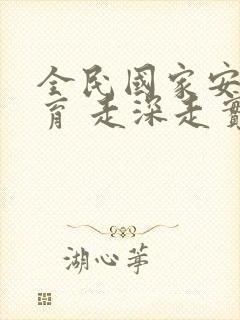 全民國家安
育 走深走實
湖心亭